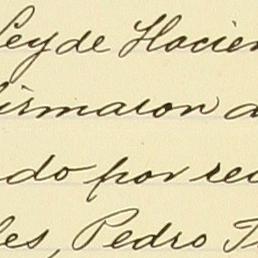 Ley de Hacien
firmaron a
do por rec
les, Pedro T